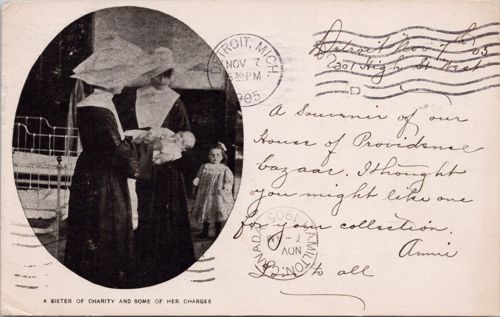 DETROIT, MICH.
NOV 7
530 PM
1905
Detroit Nov 7th 05
301 High St West
D
A Souvenir of our
House of Providence
bazaar. I thought
you might like one
for your collection.
Annie
Love to all
HAMILTON, CANADA
NOV 7 1905
A SISTER OF CHARITY AND SOME OF HER CHARGES